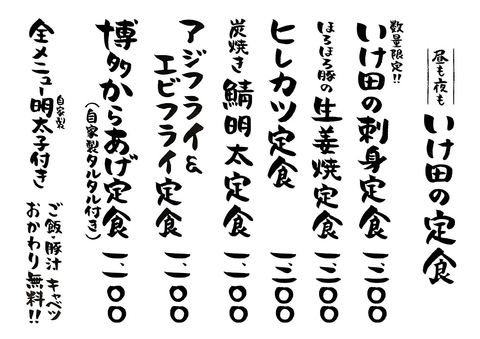 昼も夜も
いけ田の定食
数量限定!!
いけ田の刺身定食 一、三〇〇
ほろほろ豚の
生姜焼定食 一、三〇〇
ヒレカツ定食 一、三〇〇
炭焼き
鯖明太定食 一、二〇〇
アジフライ&
エビフライ定食 一、二〇〇
博多からあげ定食 一、一〇〇
(自家製タルタル付き)
自家製
全メニュー明太子付き
ご飯・豚汁 キャベツ
おかわり無料!!